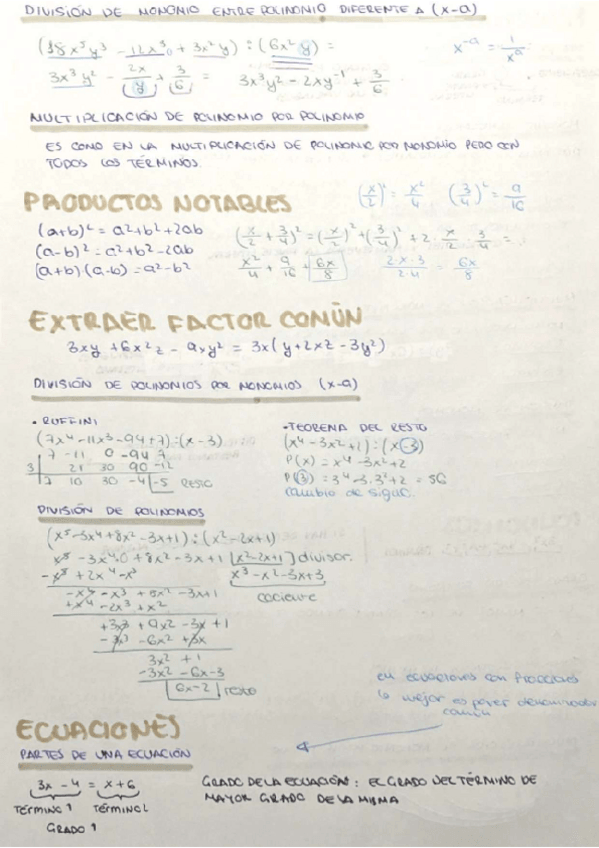 DIVISIÓN DE MONOMIO ENTRE POLINOMIO DIFERENTE A (x-a)
(18x⁵y³ - 12x³ + 3x²y) : (6x²y) =
x⁻ᵃ = 1/xᵃ
3x³y² - 2x/y + 3/6 = 3x³y² - 2xy⁻¹ + 3/6
MULTIPLICACIÓN DE POLINOMIO POR POLINOMIO
ES COMO EN LA MULTIPLICACIÓN DE POLINOMIO POR MONOMIO PERO CON
TODOS LOS TÉRMINOS.
PRODUCTOS NOTABLES
(x/2)² = x²/4 (3/4)² = 9/16
(a+b)² = a²+b²+2ab
(a-b)² = a²+b²-2ab
(a+b)·(a-b) = a²-b²
(x/2 + 3/4)² = (x/2)² + (3/4)² + 2· x/2 · 3/4 =
x²/4 + 9/16 + 6x/8
2·x·3/2·4 = 6x/8
EXTRAER FACTOR COMÚN
3xy + 6x²z - 9xy² = 3x(y + 2xz - 3y²)
DIVISIÓN DE POLINOMIOS POR MONOMIOS (x-a)
• RUFFINI
(7x⁴ - 11x³ - 94 + 7) : (x - 3)
7 -11 0 -94 7
3 21 30 90 -12
7 10 30 -4 -5 RESTO
• TEOREMA DEL RESTO
(x⁴ - 3x² + 2) : (x - 3)
P(x) = x⁴ - 3x² + 2
P(3) = 3⁴ - 3·3² + 2 = 56
cambio de signo.
DIVISIÓN DE POLINOMIOS
(x⁵ - 3x⁴ + 8x² - 3x + 1) : (x² - 2x + 1)
x⁵ - 3x⁴ 0 + 8x² - 3x + 1 x² - 2x + 1 divisor.
-x⁵ + 2x⁴ - x³ x³ - x² - 3x + 3
-x⁴ - x³ + 8x² - 3x + 1 cociente
+x⁴ - 2x³ + x²
+3x³ + 9x² - 3x + 1
-3x³ - 6x² + 3x
3x² + 1
-3x² - 6x - 3
6x - 2 resto
en ecuaciones con fracciones
lo mejor es poner denominador
común
ECUACIONES
PARTES DE UNA ECUACIÓN
3x - 4 = x + 6
TÉRMINO 1 TÉRMINO 2
GRADO 1
GRADO DE LA ECUACIÓN: EL GRADO DEL TÉRMINO DE
MAYOR GRADO DE LA MISMA